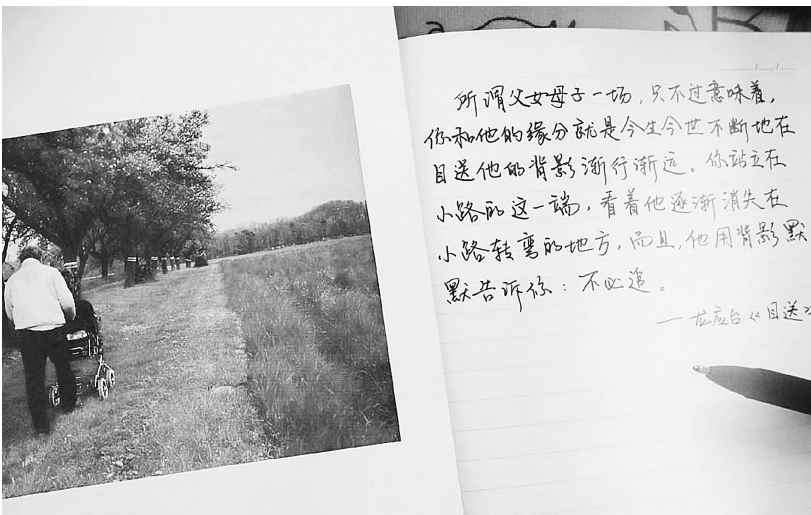 所谓父女母子一场，只不过意味着，
你和他的缘分就是今生今世不断地在
目送他的背影渐行渐远。你站立在
小路的这一端，看着他逐渐消失在
小路转弯的地方，而且，他用背影默
默告诉你：不必追。
—龙应台《目送》